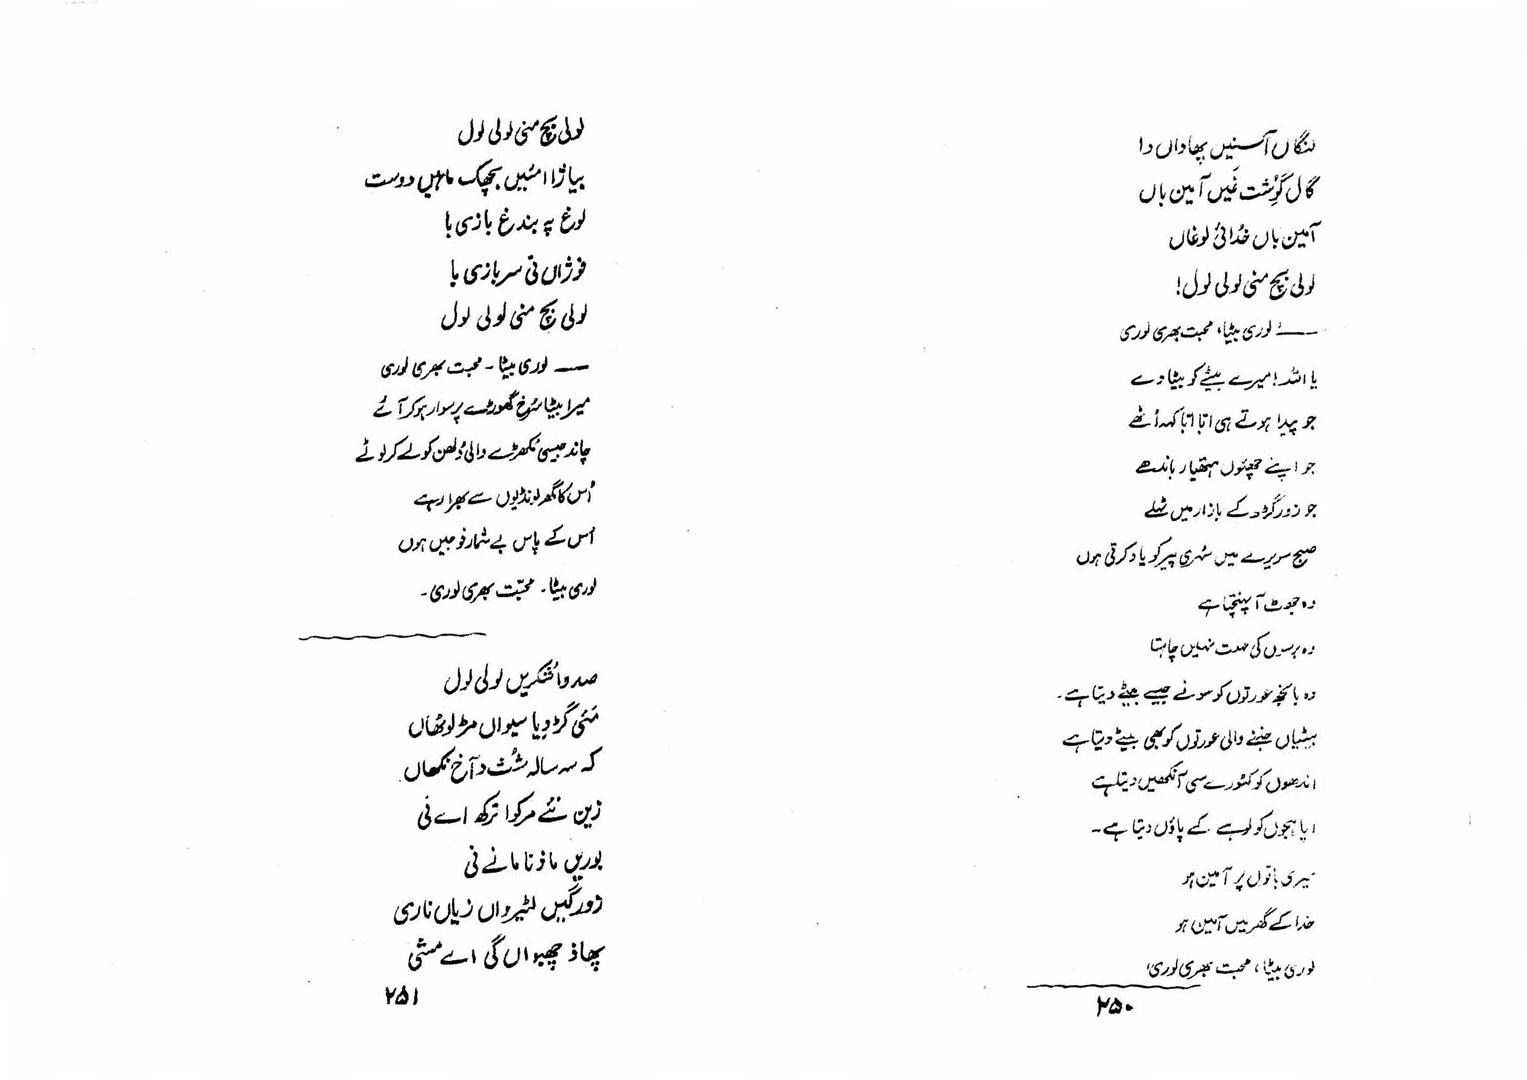 لنگاں آسنیں پھاداں دا
گال گوشت غیں آمین باں
آمین باں خدائی لوغاں
لولی بچ منی لولی لول!
— لوری بیٹا، محبت بھری لوری
یا اللہ! میرے بیٹے کو بیٹا دے
جو پیدا ہوتے ہی ابّا ابّا کہہ اُٹھے
جو اپنے چھئوں ہتھیار باندھے
جو زور گڑد کے بازار میں ٹہلے
صبح سریرے میں سہری پیر کو یاد کرتی ہوں
وہ جھٹ آ پہنچتا ہے
وہ برسوں کی مہلت نہیں چاہتا
وہ بانجھ عورتوں کو سونے جیسے بیٹے دیتا ہے۔
بیٹیاں جننے والی عورتوں کو بھی بیٹے دیتا ہے
اندھوں کو کٹورے سی آنکھیں دیتا ہے
اپاہجوں کو لوہے کے پاؤں دیتا ہے۔
میری باتوں پر آمین ہو
خدا کے گھر میں آمین ہو
لوری بیٹا، محبت بھری لوری!
۲۵۰
لولی بچ منی لولی لول
بیاژا امئیں بچھک ماہیں دوست
لوغ پہ بندغ بازی با
فوژاں ئی سربازی با
لولی بچ منی لولی لول
— لوری بیٹا۔ محبت بھری لوری
میرا بیٹا سُرخ گھوڑے پر سوار ہو کر آئے
چاند جیسی مُکھڑے والی دُلھن کو لے کر لوٹے
اُس کا گھر لونڈیوں سے بھرا رہے
اُس کے پاس بے شمار فوجیں ہوں
لوری بیٹا۔ محبّت بھری لوری۔
صدوا شکریں لولی لول
مَئی گڑدیا سیواں مڑ لوٹھاں
کہ سہ سالہ شُت دآخ نکھاں
زین نئے مرکوا ترکھ اے ئی
بوریں ماذنا مانے ئی
زورگیں لٹیرواں زیاں ناری
پھاذ چھبواں گی اے مشی
۲۵۱